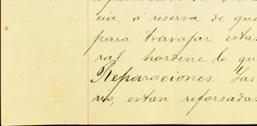 cia, á reserva de que
para trabajar estas
ral hordene lo qu
Reparaciones. Las
vs, estan reforsadas